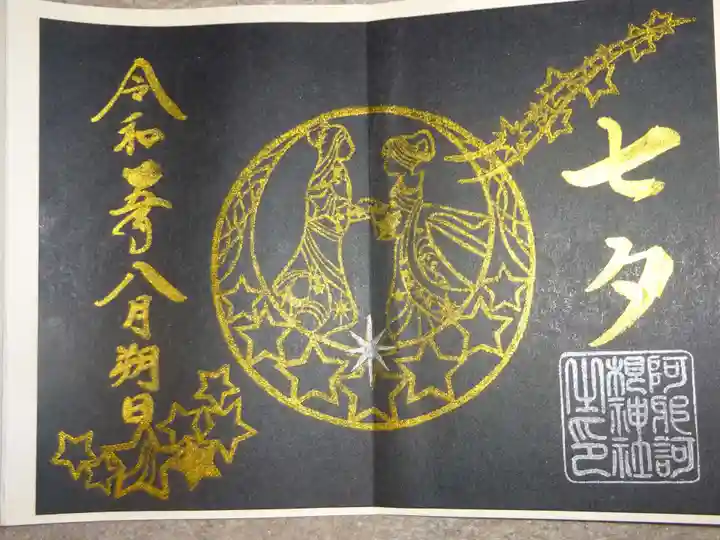 七夕
阿邪訶
根神社
之印
令和 八月朔日